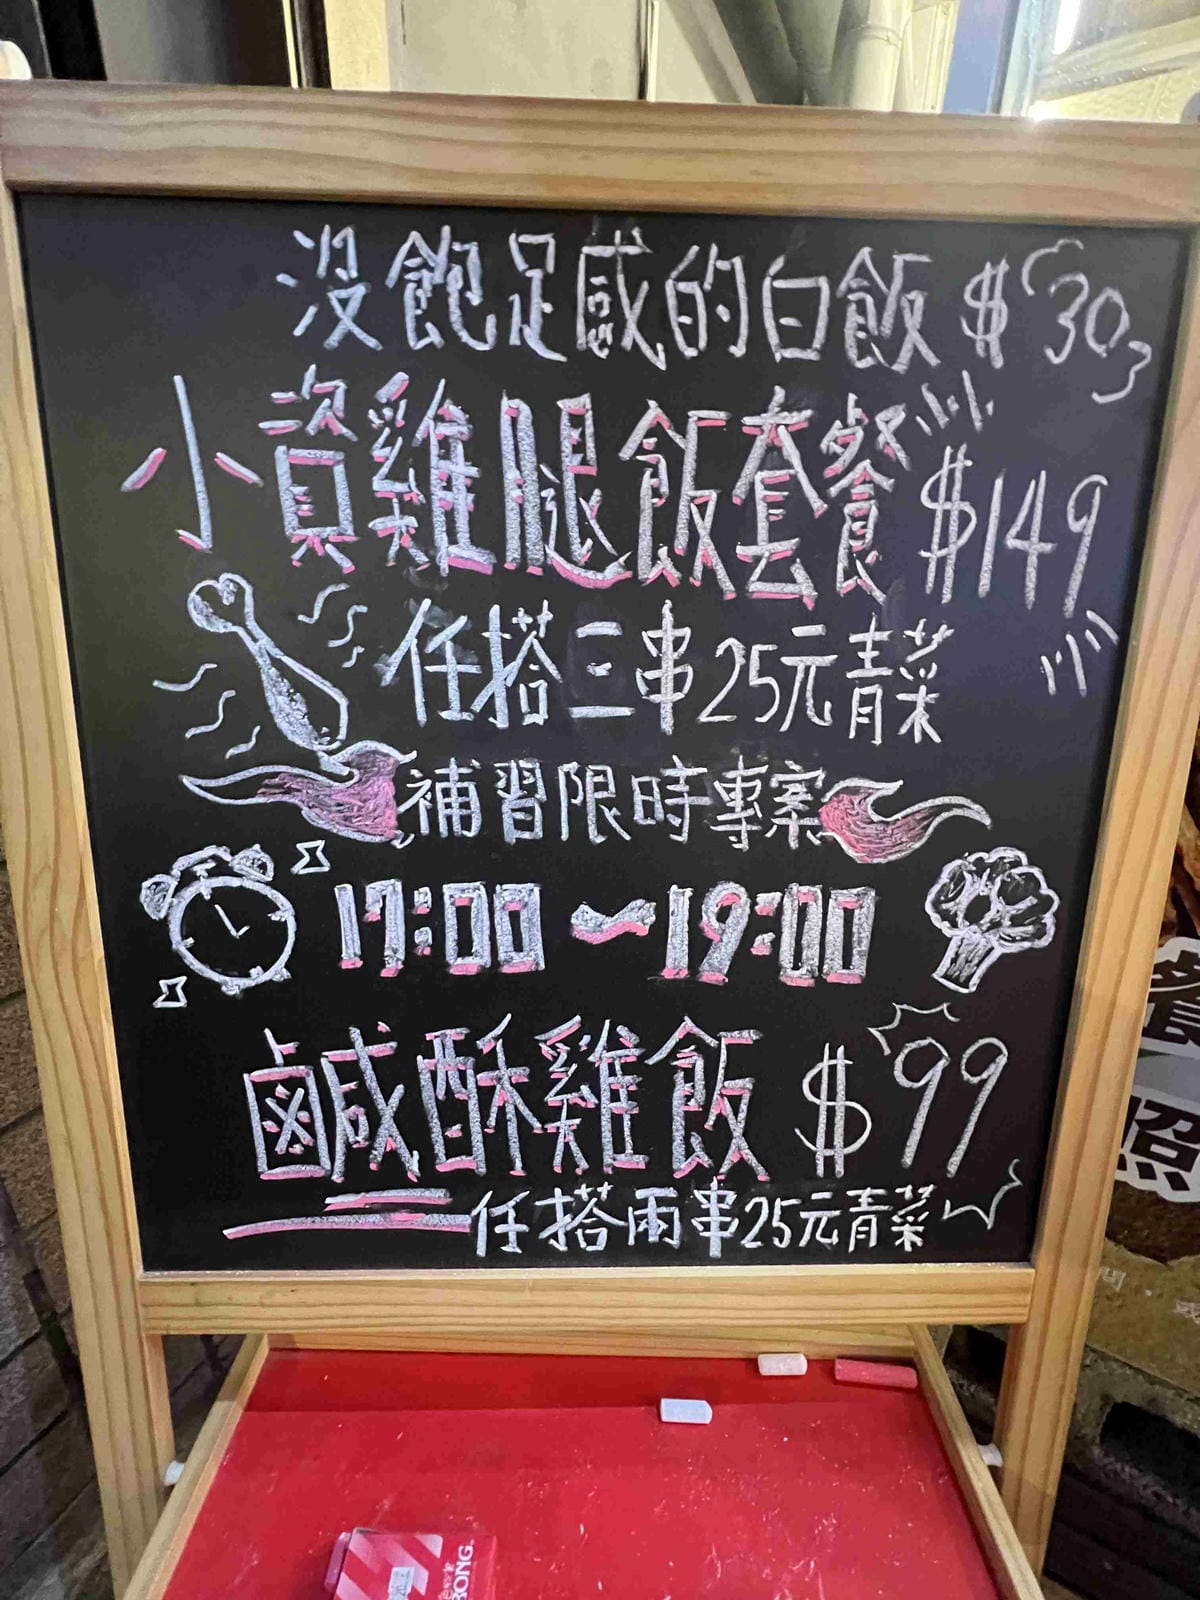 沒飽足感的白飯 $30
小資雞腿飯套餐 $149
任搭三串25元青菜
補習限時專案
17:00～19:00
鹹酥雞飯 $99
任搭兩串25元青菜
餐
照
RONG